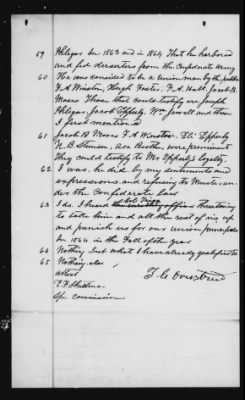 59 Phlegar In 1863 and in 1864 That he harbored
and fed deserters from the Confederate army
60 He was considered to be a union man by the public
F. A. Winston, Hugh Foster, F. A. Hall, Jacob H.
Moses Those that could testify are Joseph
Phlegar, Jacob Epperly, Wm Jewell and them
I first mention
61 Jacob H Moses F A Winston. Eli Epperly
N. B Stimson, Asa Booth. were prominent
They could testify to Mr Epperlys loyalty.
62 I was. he did by my sentiments and
expressions and refusing to Muster un-
der the Confederate law
63 I do. I heard threatning
to take him and all the rest of us up
and punish us for our union principles
In 1864 in the Fall of the year
64 Nothing but what I have already qualified to
65 Nothing else
attest
Spe Commissioner